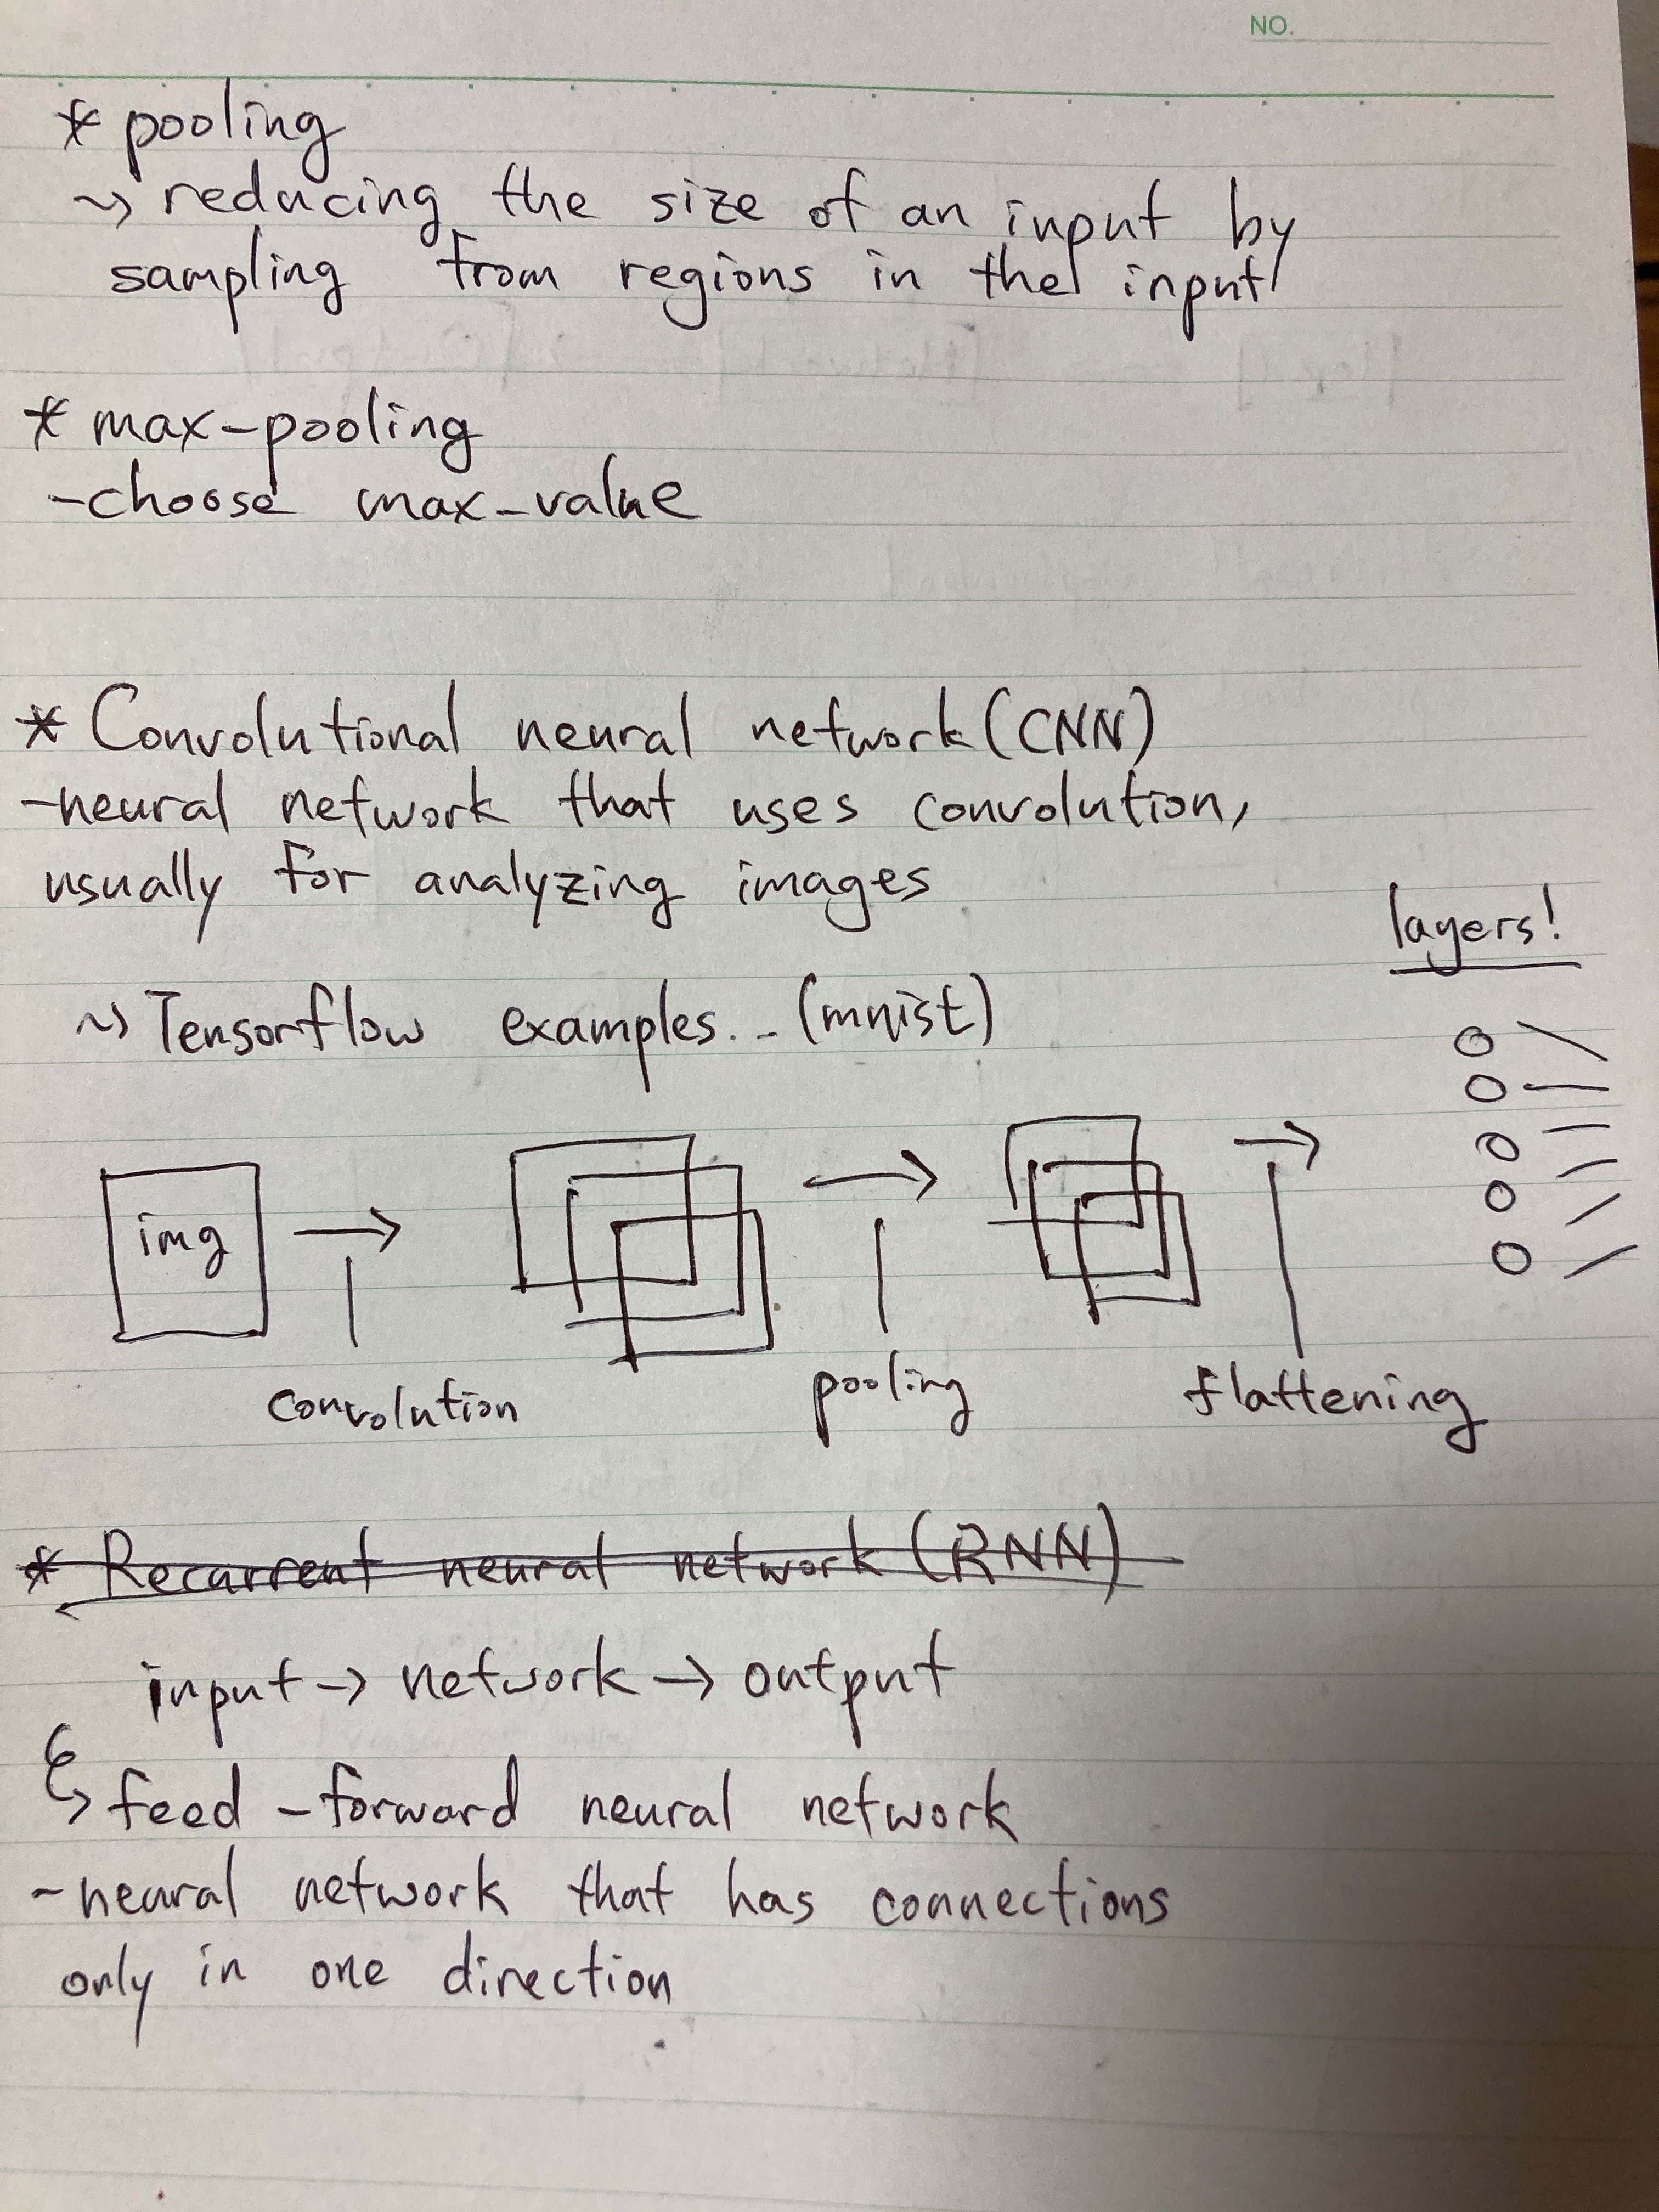 NO.
* pooling
~> reducing the size of an input by
sampling from regions in the input
* max-pooling
-choose max-value
* Convolutional neural network (CNN)
-neural network that uses convolution,
usually for analyzing images
layers!
~> Tensorflow examples... (mnist)
img
convolution
pooling
flattening
* Recurrent neural network (RNN)
input → network → output
↳ feed-forward neural network
- neural network that has connections
only in one direction